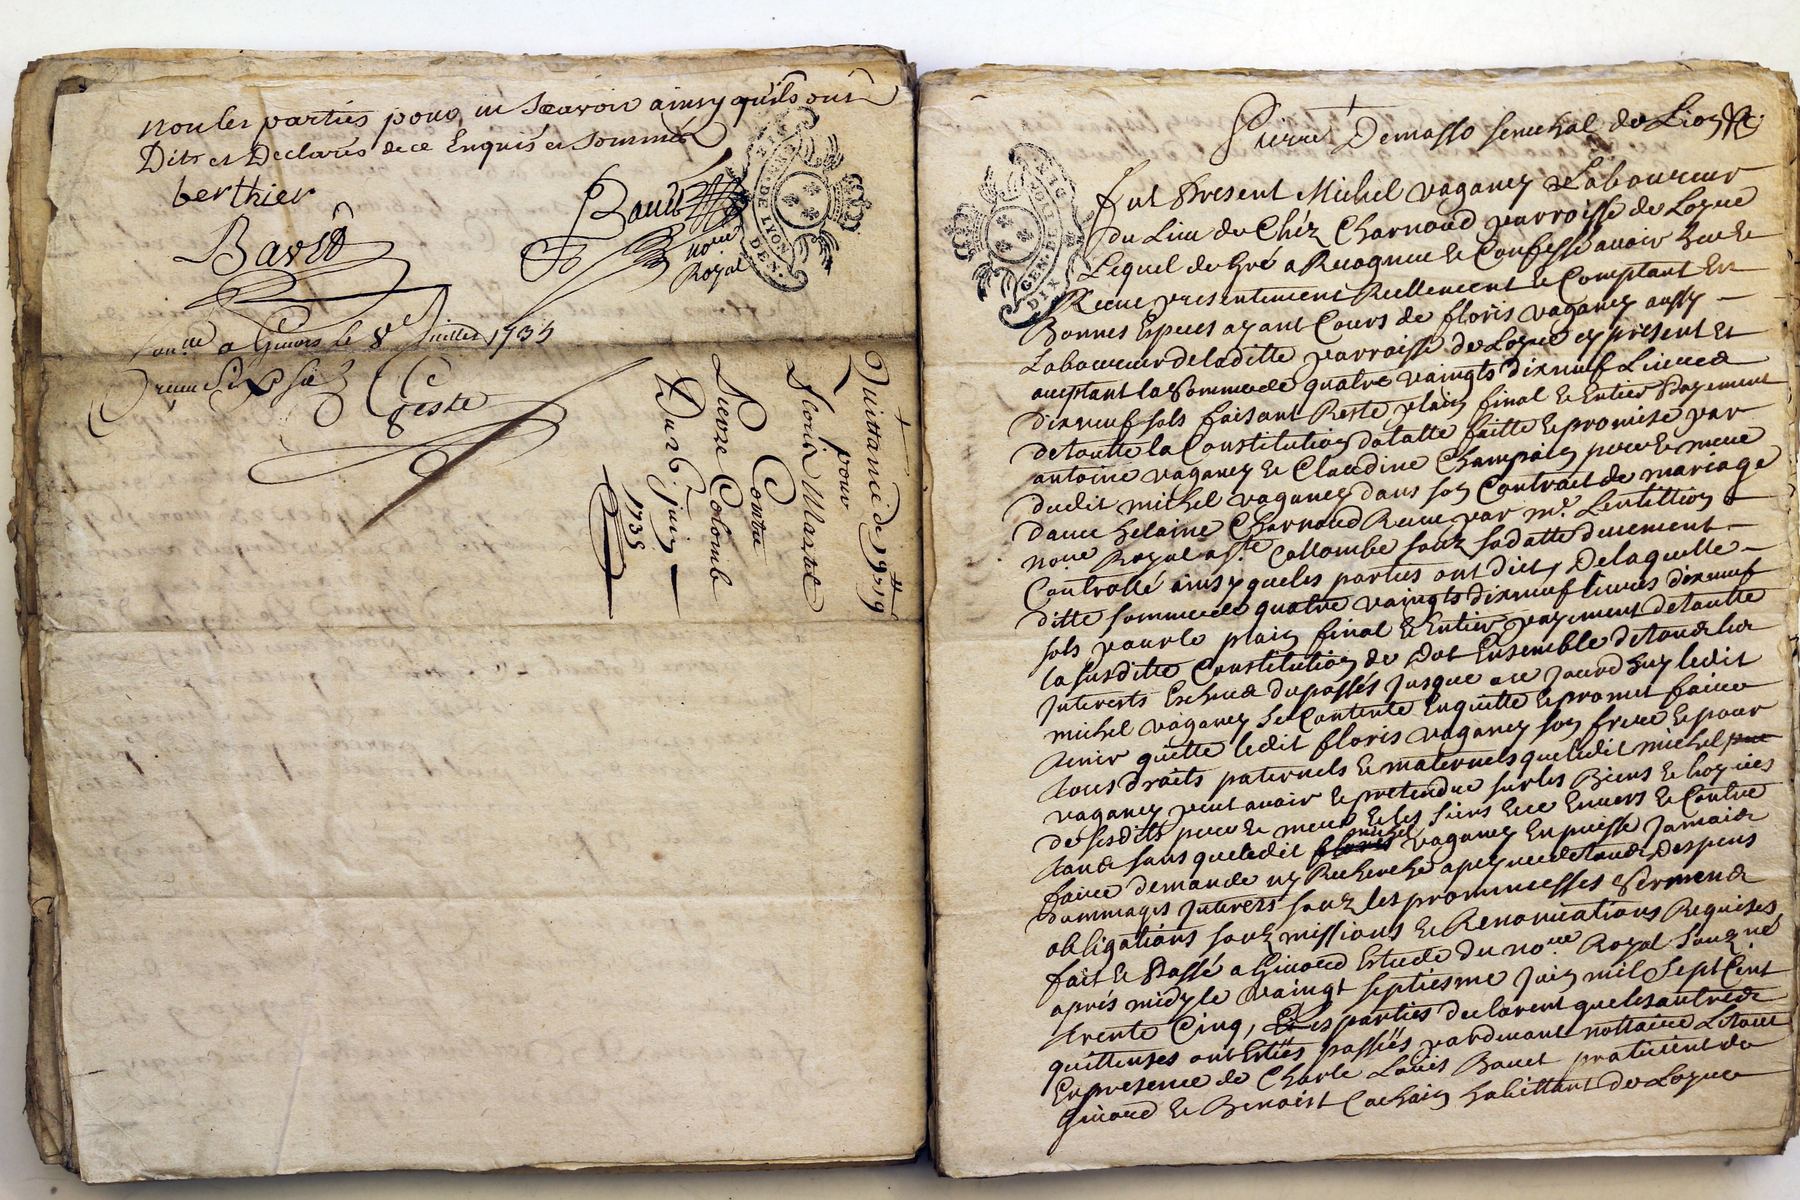 non les parties pour ne Scavoir ainsy qu'ils ont
Dits et Declarés de ce Enquis et sommés
berthier
Bavet
Bavet
no.re
Royal
GEN. DE LYON
DEN.
a Givors le 8e Juillet 1735
Receu
Geste
Quittance de 19
pour
Floris
Contre
Pierre Colomb
Du 26. juin
1735
Pierre Demasso senechal de Lion
GEN. DE LION
DIX
fut Present Michel vaganey Laboureur
du Lieu de Chéz Charnaud parroisse de Loyre
Lequel de Gré a Recognu et Confessé avoir heu et
Receu presentement Reellement et Comptant En
Bonnes Especes ayant Cours de floris vaganey aussy
Laboureur de laditte parroisse de Loyre cy present et
aceptant la Somme de quatre vaingts dixneuf Livres
dixneuf sols faisant Reste plain final et Entier Payement
de toutte la Constitution dotalle faitte et promise par
antoine vaganey et Claudine Champain pere et mere
dudit michel vaganey dans son Contrait de mariage
davec helaine Charnaud Receu par mr. Lentillion
no.re Royal a ste Collombe souz sa datte deuement
Controllé ainsy que les parties ont dict, De laquelle
ditte somme de quatre vaingts dixneuf livres dixneuf
sols pour le plain final et Entier payement de toutte
la susditte Constitution de Dot Ensemble de tous les
Interests Escheus du passés jusque a ce jourd'huy ledit
michel vaganey se Contente Enquitte et promet faire
tenir quitte ledit floris vaganey son frere et pour
tous droits paternels et maternels que ledit michel
vaganey peut avoir et pretendre sur les Biens et hoyries
de sesdits pere et mere et les siens et ce Envers et Contre
tous sans que ledit michel vaganey En puisse jamais
faire demande ny Recherche a peyne de tous Despens
dommages Interets souz les prommesses Serments
obligations soubmissions et Renonciations Requises
fait et Passé a Givord Estude du no.re Royal souzné
aprés midy le vaingt septiesme Juin mil Sept Cent
trente Cinq, Les parties declarent que les autres
quittenses ont Estés passées pardevant nottaire Le tout
En presence de Charle Louis Bavet praticient de
Givord et Benoist Cachain habittant de Loyre